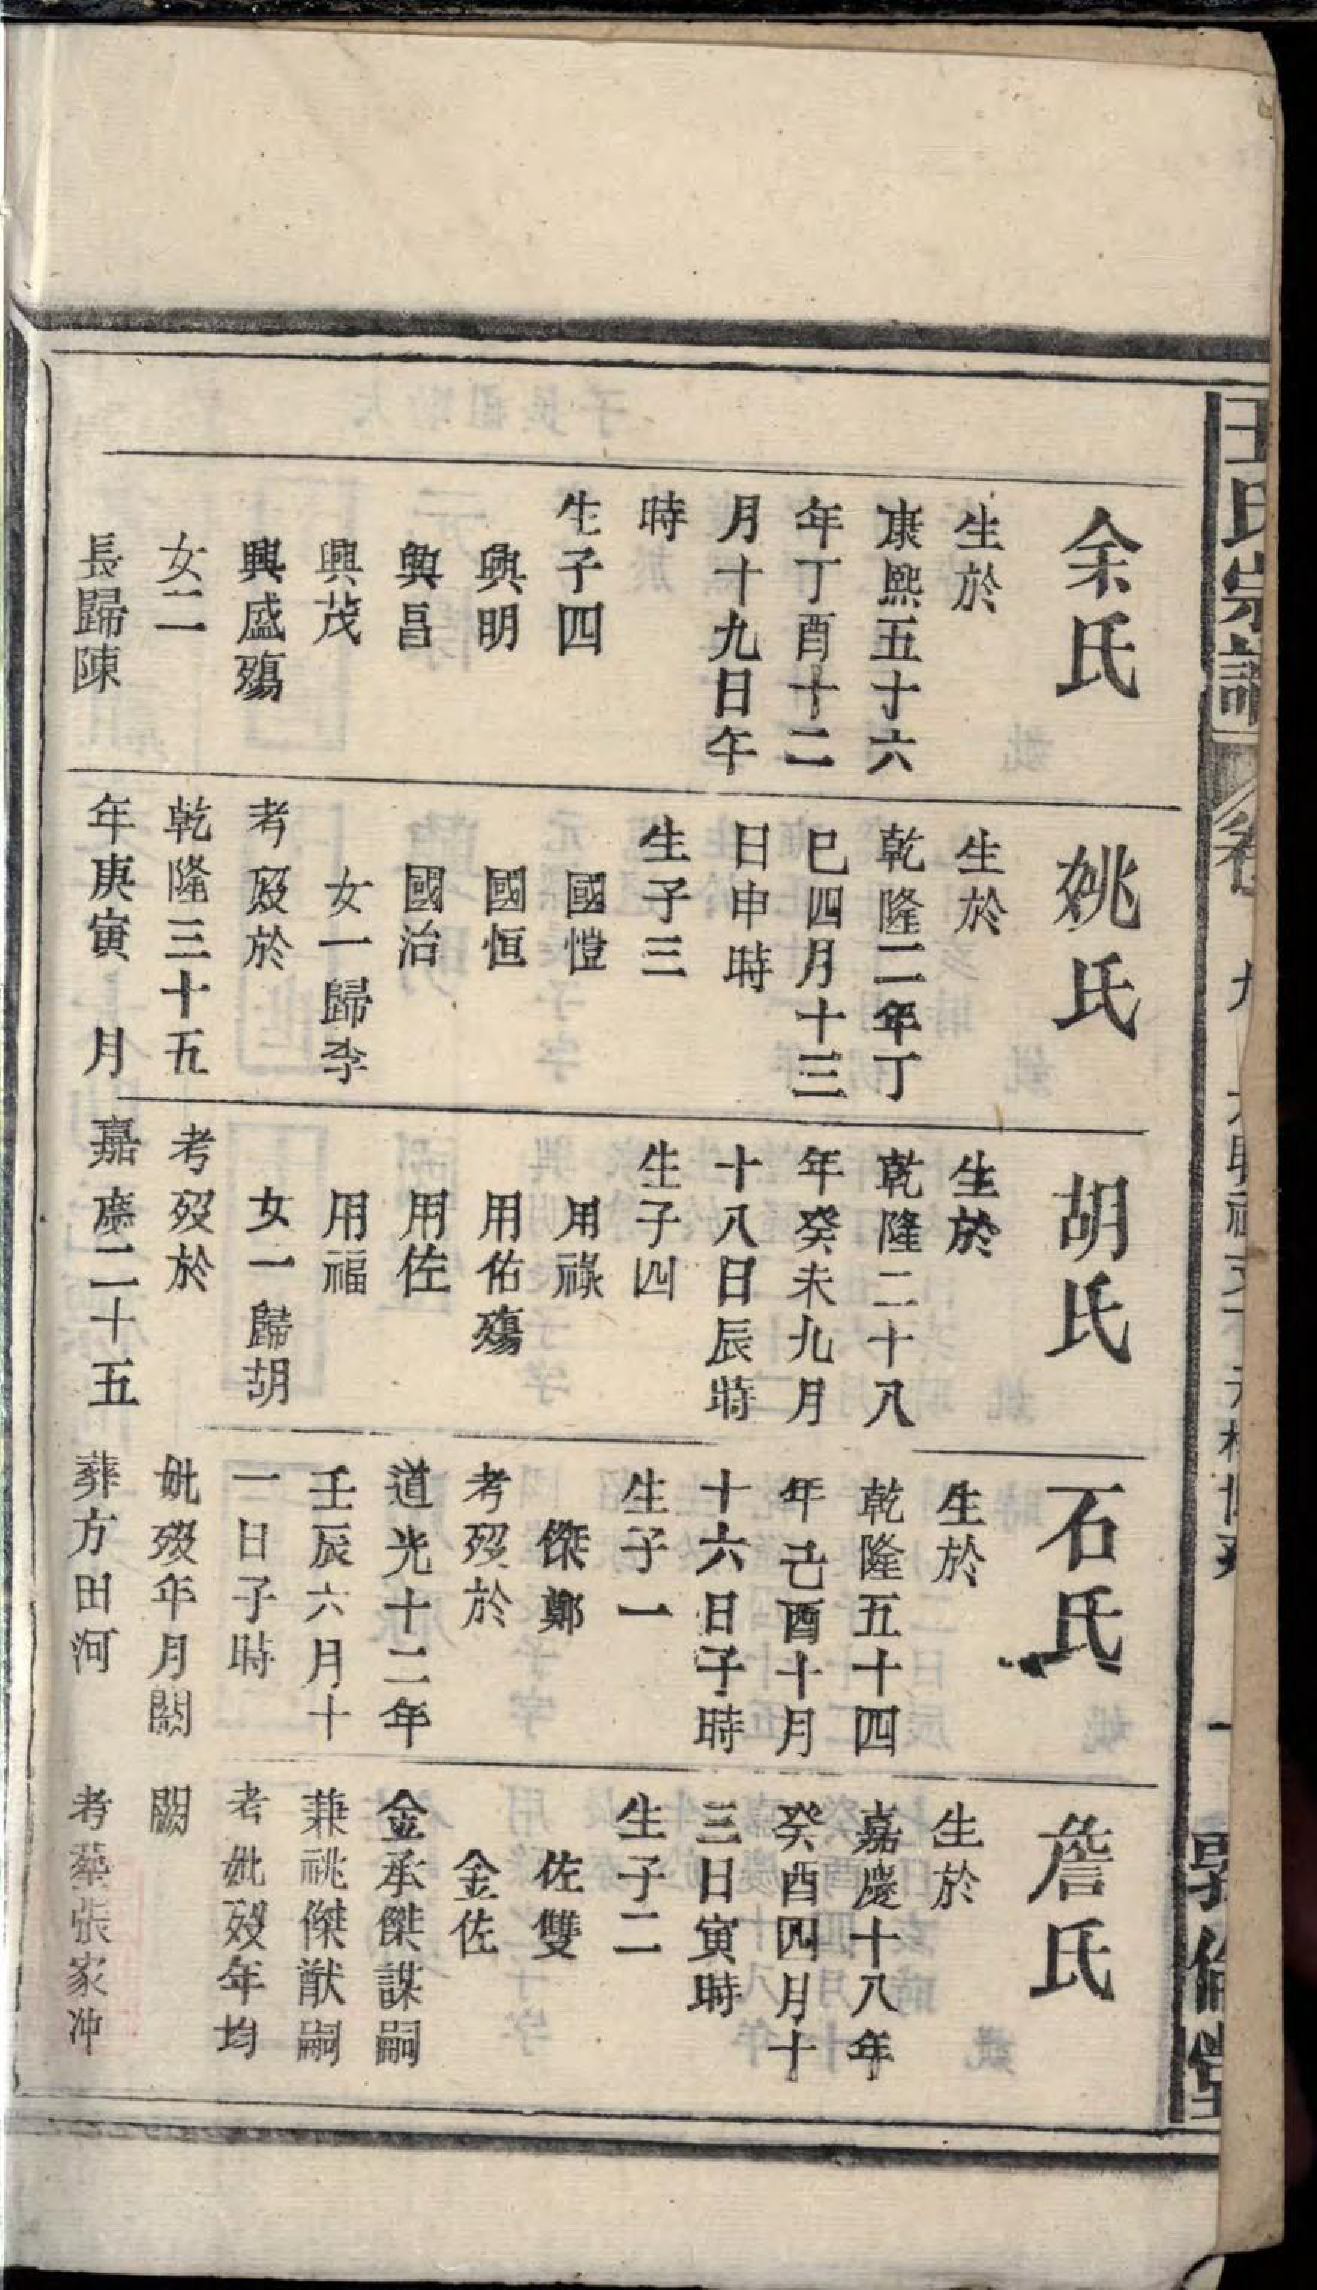 王氏宗譜
卷 九
一
敦倫堂
余氏
生於
康熙五十六
年丁酉十二
月十九日午
時
生子四
興明
興昌
興茂
興盛殤
女二
長歸陳
姚氏
生於
乾隆二年丁
巳四月十三
日申時
生子三
國愷
國恒
國治
女一歸李
考歿於
乾隆三十五
年庚寅 月
胡氏
生於
乾隆二十八
年癸未九月
十八日辰時
生子四
用祿
用佑殤
用佐
用福
女一歸胡
考歿於
嘉慶二十五
石氏
生於
乾隆五十四
年己酉十月
十六日子時
生子一
傑鄭
考歿於
道光十二年
壬辰六月十
一日子時
妣歿年月闕
葬方田河
詹氏
生於
嘉慶十八年
癸酉四月十
三日寅時
生子二
佐雙
金佐
金承傑謀嗣
兼祧傑猷嗣
考妣歿年均
闕
考葬張家冲